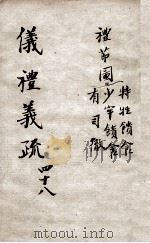 特牲饋食
禮節圖 少牢饋食
有司徹
儀禮義疏 四十八
mtoou.info